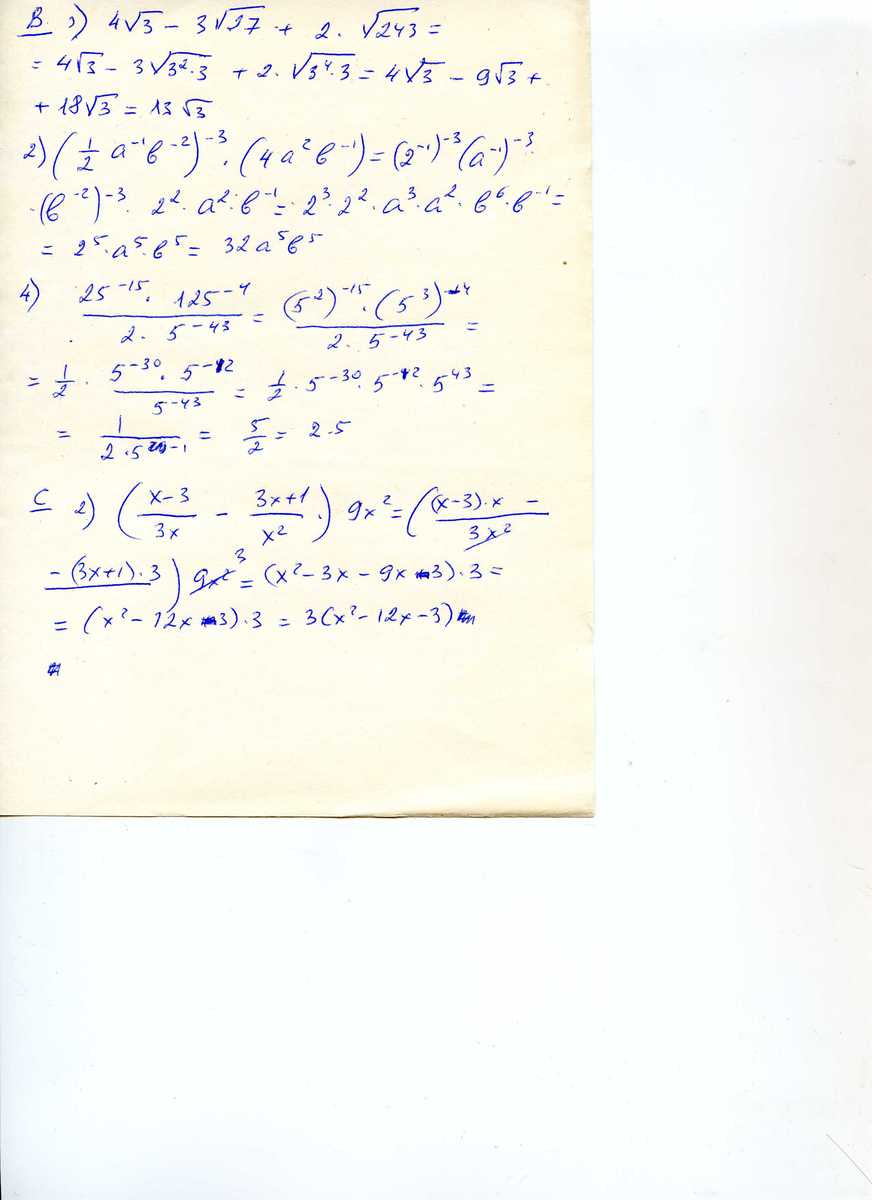 В 1) 4√3 − 3√27 + 2 · √243 =
= 4√3 − 3√(3²·3) + 2 · √(3⁴·3) = 4√3 − 9√3 +
+ 18√3 = 13√3
2) (1/2 a⁻¹ b⁻²)⁻³ · (4a² b⁻¹) = (2⁻¹)⁻³ (a⁻¹)⁻³ ·
· (b⁻²)⁻³ · 2² · a² · b⁻¹ = 2³ · 2² · a³ · a² · b⁶ · b⁻¹ =
= 2⁵ · a⁵ · b⁵ = 32a⁵b⁵
4) (25⁻¹⁵ · 125⁻⁴)/(2 · 5⁻⁴³) = ((5²)⁻¹⁵ · (5³)⁻⁴)/(2 · 5⁻⁴³) =
= 1/2 · (5⁻³⁰ · 5⁻¹²)/5⁻⁴³ = 1/2 · 5⁻³⁰ · 5⁻¹² · 5⁴³ =
= 1/(2 · 5⁻¹) = 5/2 = 2.5
С 2) ((x−3)/3x − (3x+1)/x²) 9x² = ((x−3)·x −
− (3x+1)·3)/3x² 9x² 3 = (x² − 3x − 9x − 3) · 3 =
= (x² − 12x − 3) · 3 = 3(x² − 12x − 3)